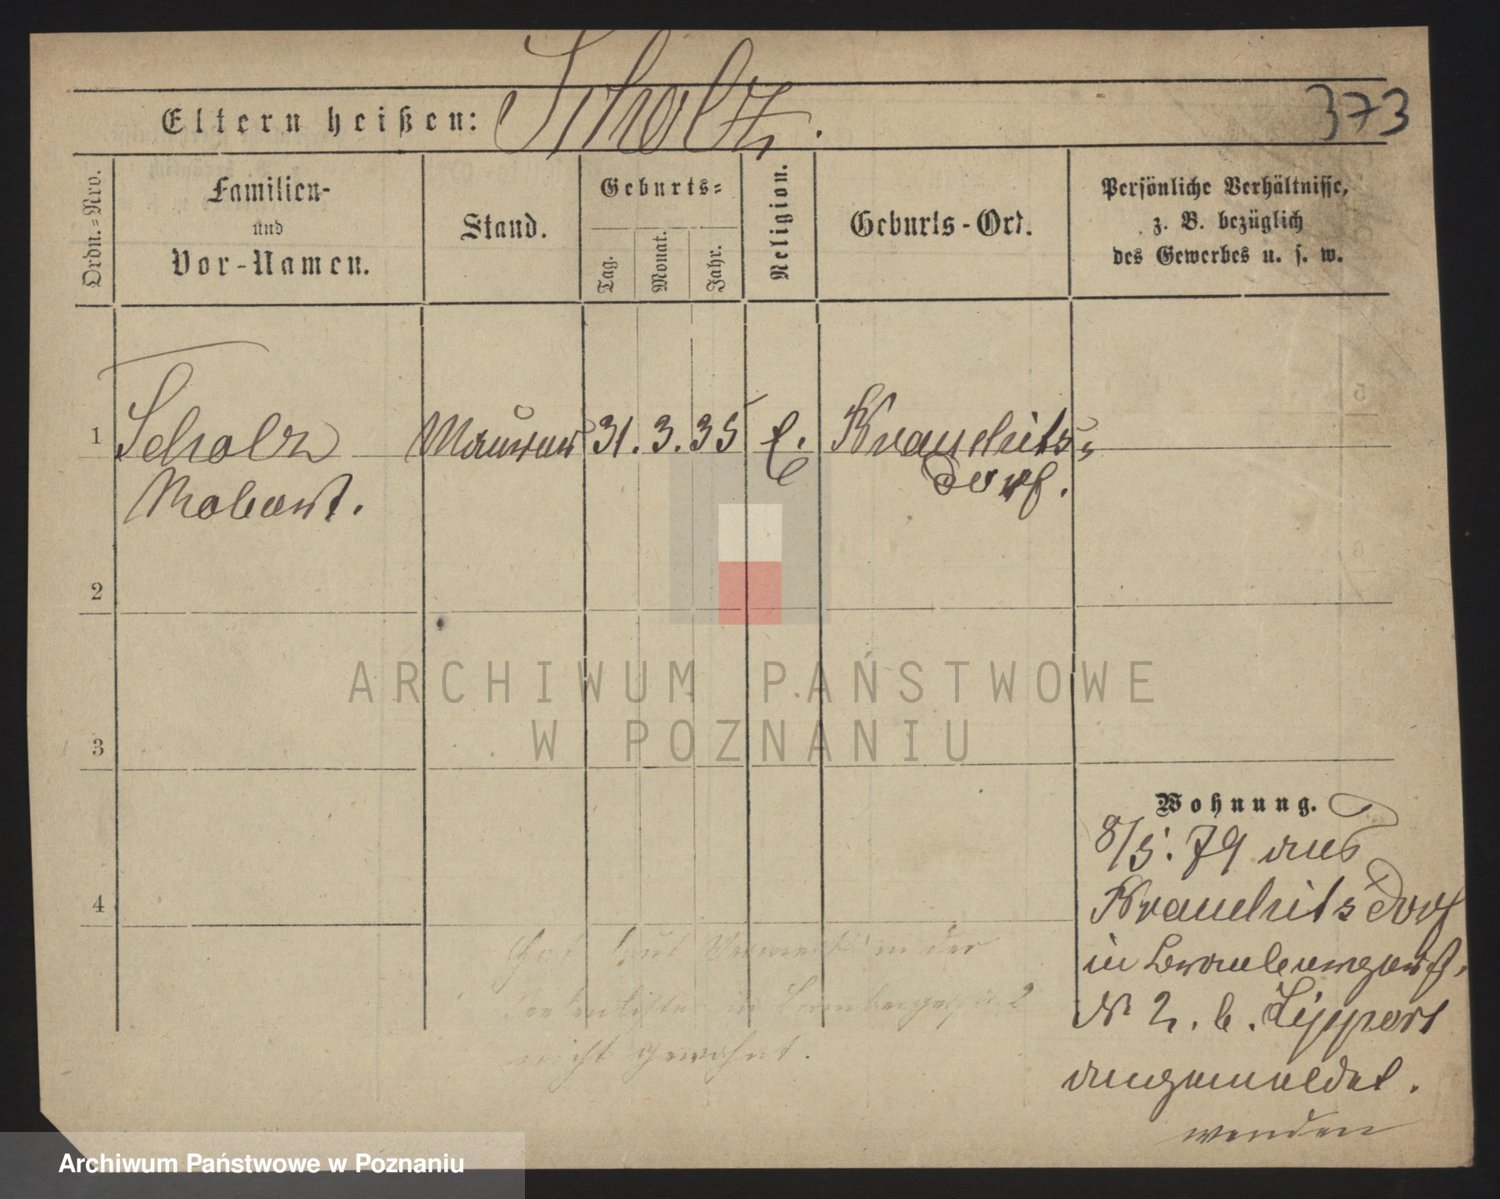 Eltern heißen: Scholz.
373
Ordn.=Nro.
Familien-
und
Vor-Namen.
Stand.
Geburts=
Tag.
Monat.
Jahr.
Religion.
Geburts-Ort.
Persönliche Verhältnisse,
z. B. bezüglich
des Gewerbes u. s. w.
1 Scholz Maurer 31. 3. 35 E. Krauchits-
Robert. Dorf.
2
3
4
Wohnung.
8/5. 79 aus
Krauchits Dorf
in
N 2. b. Lippert
angemeldet.
wenden
in der
nicht gewohnt.
ARCHIWUM PAŃSTWOWE
W POZNANIU
Archiwum Państwowe w Poznaniu